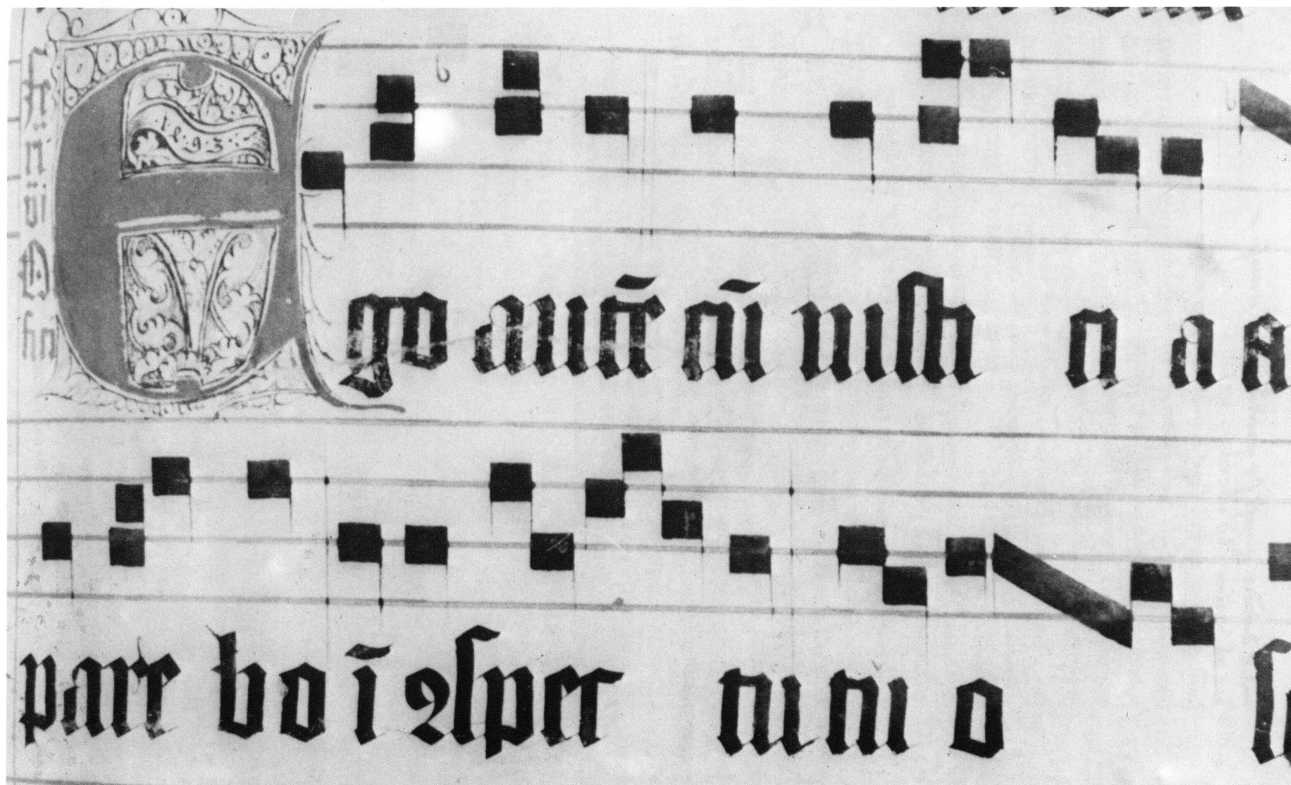 1493
Ego autē cū iusti ti a a
pare bo ī ꝯspec tu tu o